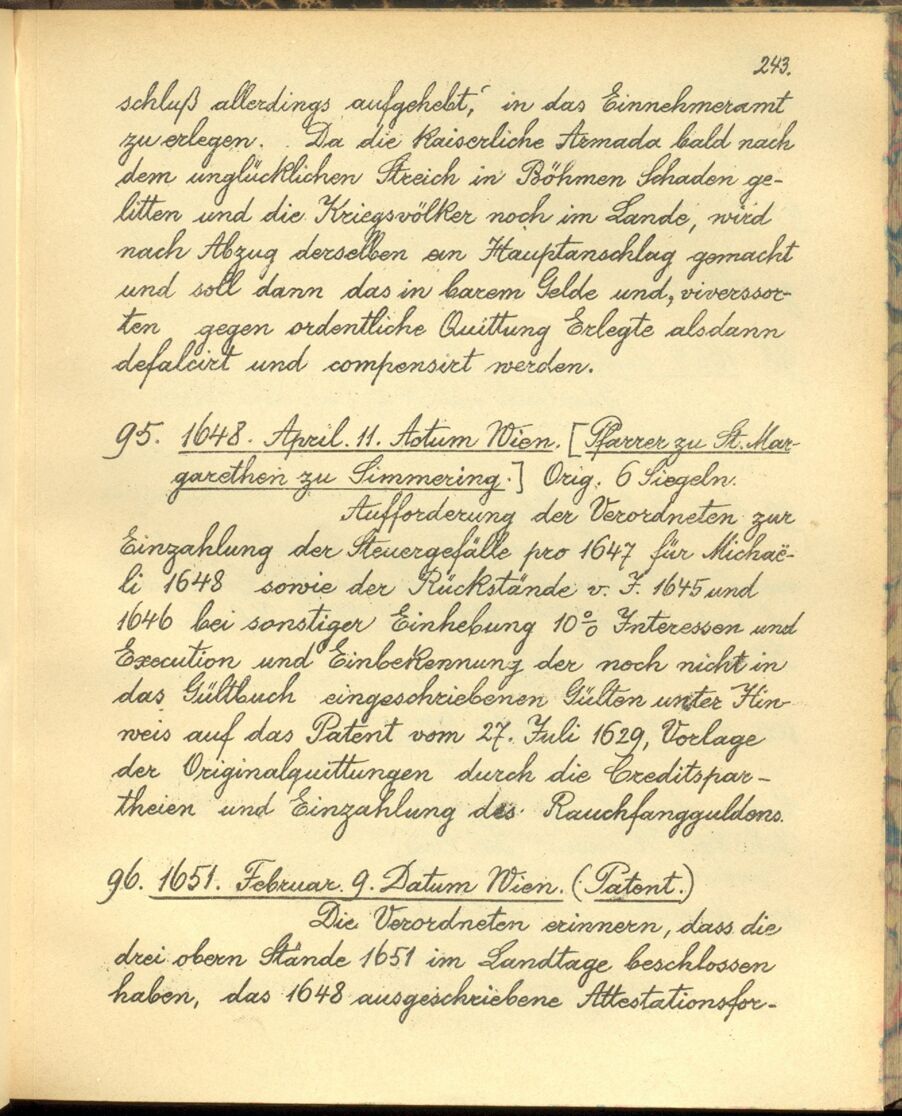 243.
schluß allerdings aufgehebt,“ in das Einnehmeramt
zu erlegen. Da die Kaiserliche Armada bald nach
dem unglücklichen Streich in Böhmen Schaden ge-
litten und die Kriegsvölker noch im Lande, wird
nach Abzug derselben ein Hauptanschlag gemacht
und soll dann das in barem Gelde und „viverssor-
ten gegen ordentliche Quittung Erlegte alsdann
defalcirt und compensirt werden.
95. 1648. April. 11. Actum Wien. [Pfarrer zu St. Mar-
garethen zu Simmering.] Orig. 6 Siegeln.
Aufforderung der Verordneten zur
Einzahlung der Steuergefälle pro 1647 für Michaë-
li 1648 sowie der Rückstände v. J. 1645 und
1646 bei sonstiger Einhebung 10% Interessen und
Execution und Einbekennung der noch nicht in
das Gültbuch eingeschriebenen Gülten unter Hin-
weis auf das Patent vom 27. Juli 1629, Vorlage
der Originalquittungen durch die Creditspar-
theien und Einzahlung des Rauchfangguldens.
96. 1651. Februar. 9. Datum Wien. (Patent.)
Die Verordneten erinnern, dass die
drei obern Stände 1651 im Landtage beschlossen
haben, das 1648 ausgeschriebene Attestationsfor-